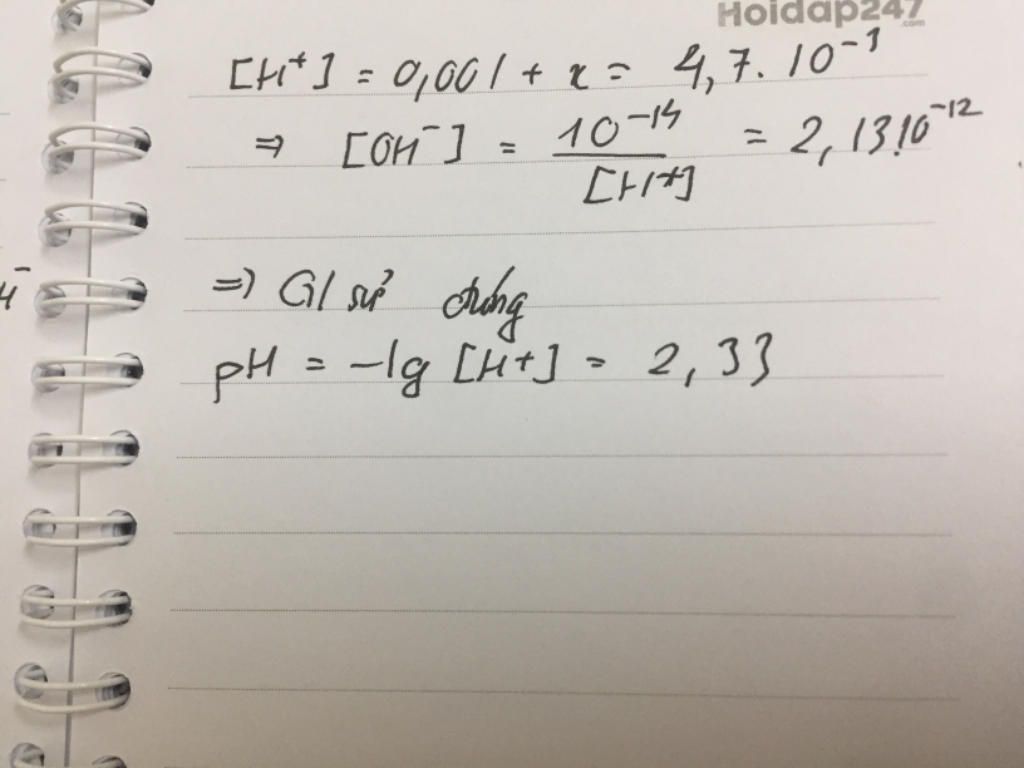 Hoidap247
.com
[H⁺] = 0,001 + x = 4,7.10⁻³
⇒ [OH⁻] = 10⁻¹⁴ / [H⁺] = 2,13.10⁻¹²
⇒ Giả sử đúng
pH = -lg [H+] = 2,33